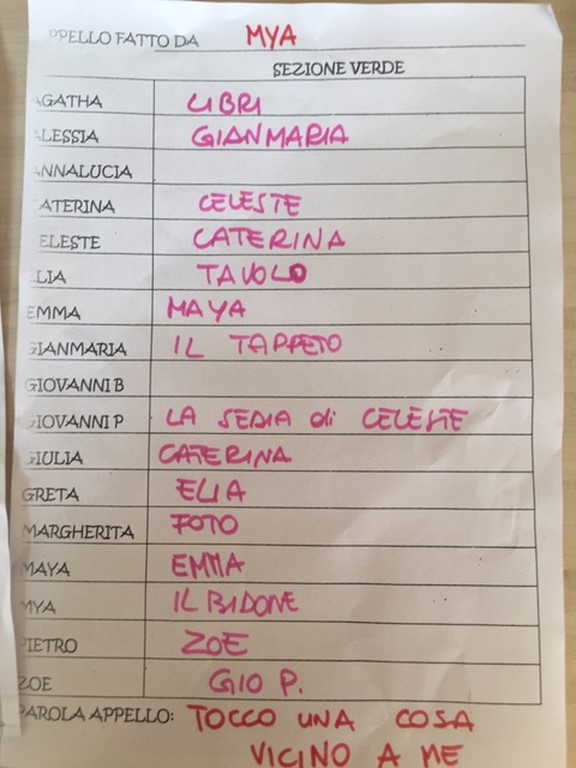 PPELLO FATTO DA MYA
SEZIONE VERDE
AGATHA LIBRI
ALESSIA GIANMARIA
ANNALUCIA
CATERINA CELESTE
CELESTE CATERINA
ELIA TAVOLO
EMMA MAYA
GIANMARIA IL TAPPETO
GIOVANNI B
GIOVANNI P LA SEDIA di CELESTE
GIULIA CATERINA
GRETA ELIA
MARGHERITA FOTO
MAYA EMMA
MYA IL BIDONE
PIETRO ZOE
ZOE GIO P.
PAROLA APPELLO: TOCCO UNA COSA
VICINO A ME